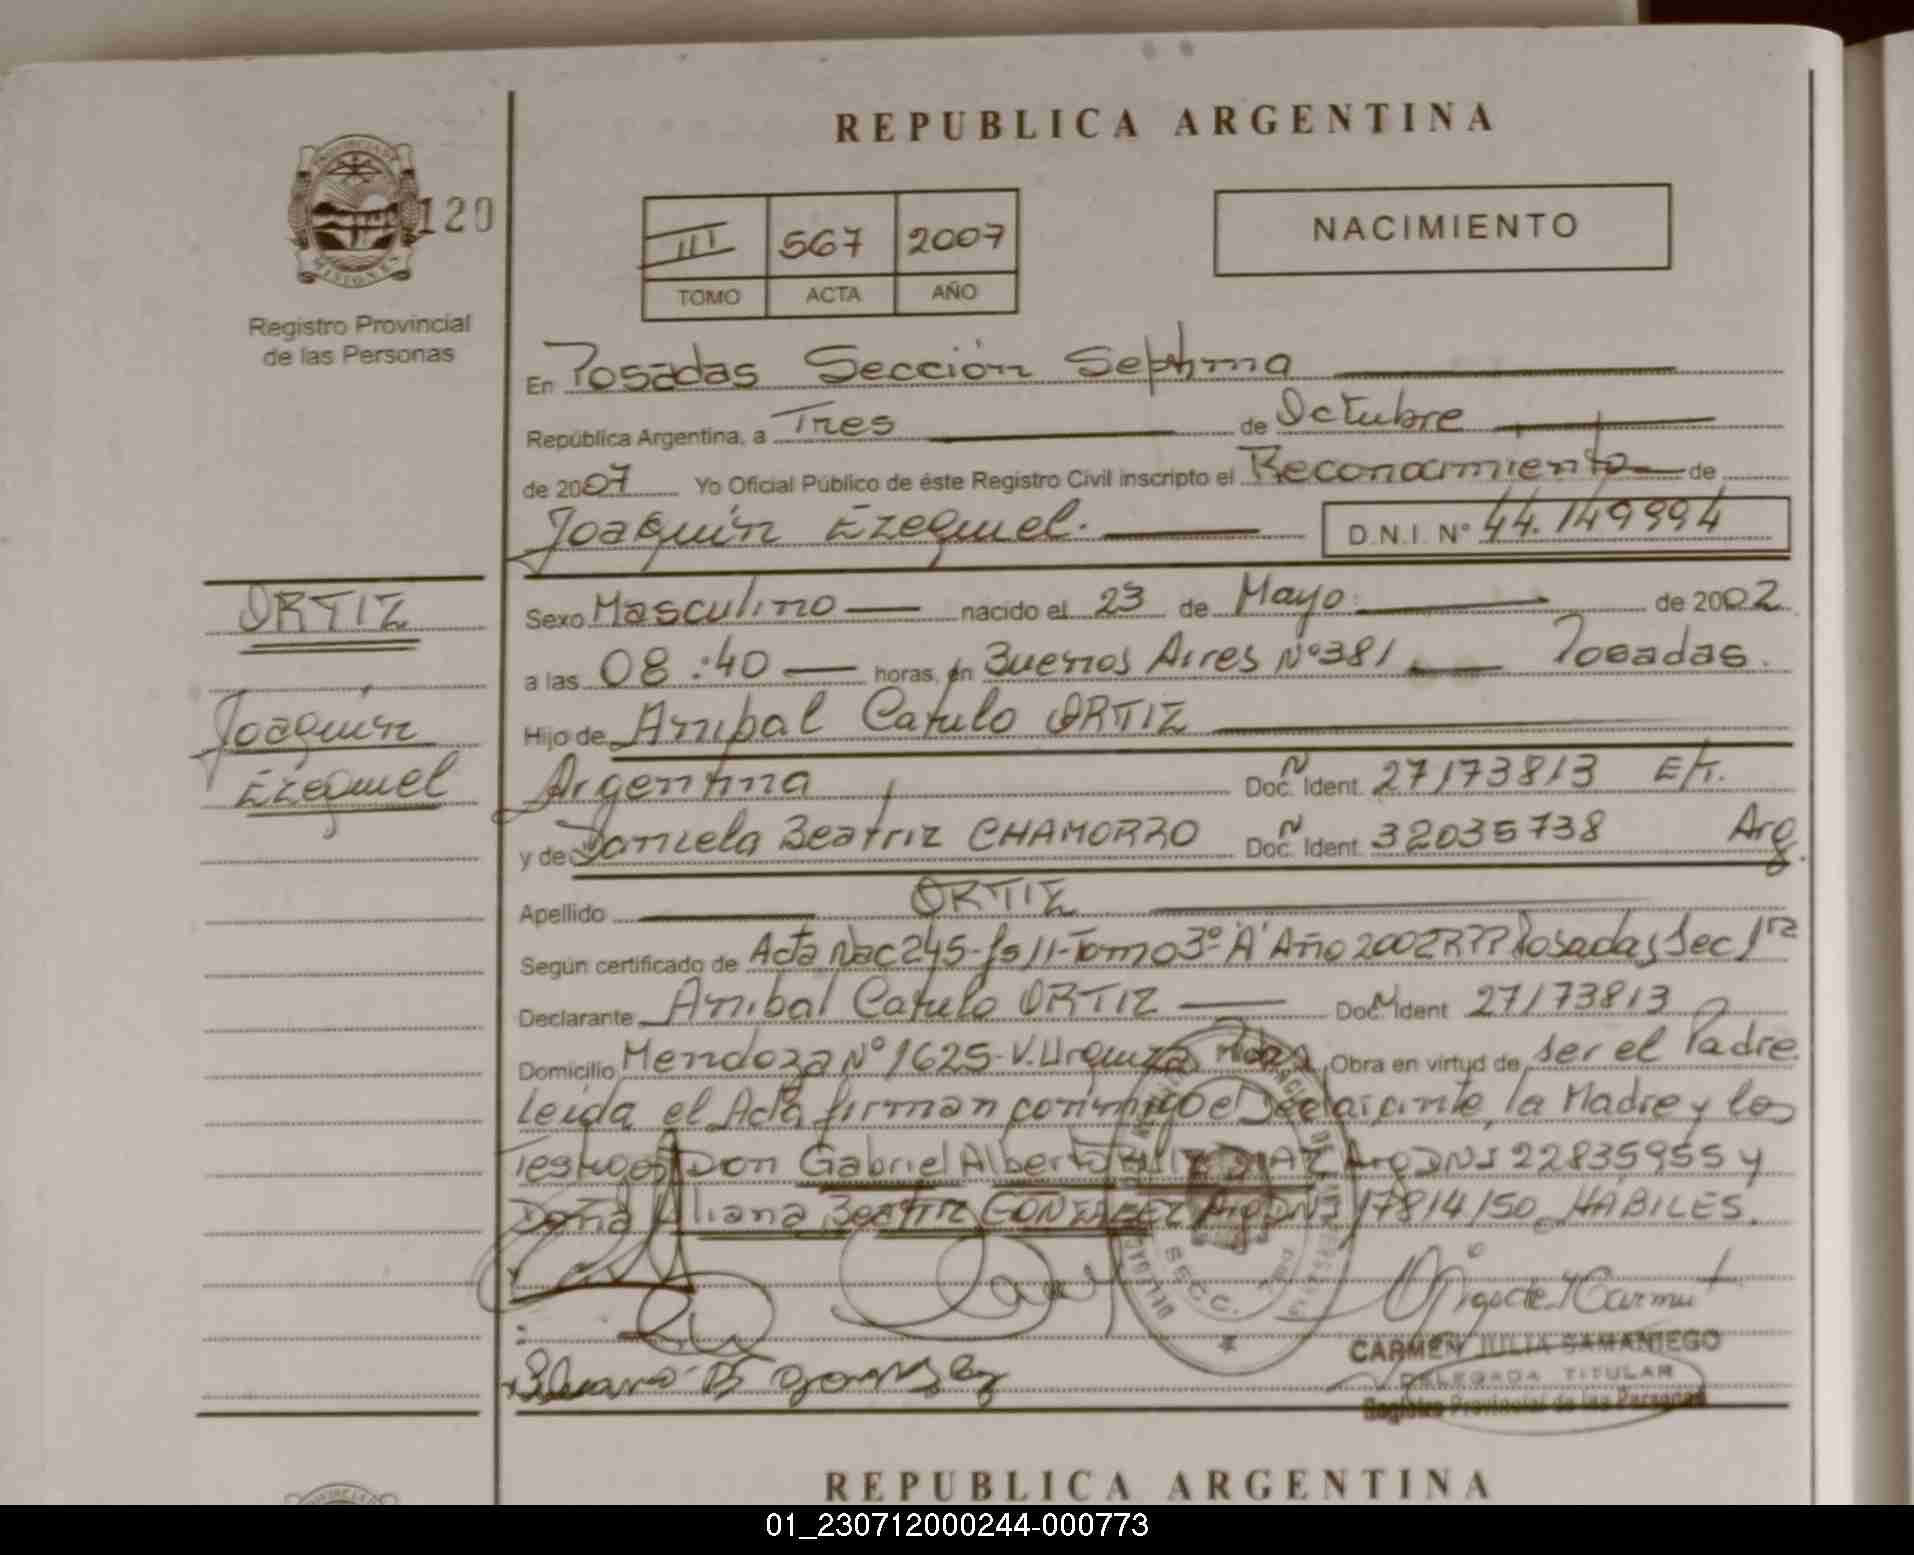 REPUBLICA ARGENTINA
PROVINCIA DE
MISIONES
120
Registro Provincial
de las Personas
III 567 2007
TOMO ACTA AÑO
NACIMIENTO
En Posadas Sección Septima
República Argentina, a Tres de Octubre
de 2007 Yo Oficial Público de éste Registro Civil inscripto el Reconocimiento de
Joaquín Ezequiel. D.N.I. N° 44.149994
ORTIZ
Joaquín
Ezequiel
Sexo Masculino nacido el 23 de Mayo de 2002
a las 08:40 horas, en Buenos Aires N°381 Posadas.
Hijo de Anibal Catulo ORTIZ
Argentina Doc. Ident. 27173813
y de Daniela Beatriz CHAMORRO Doc. Ident. 32035738 Arg.
Apellido ORTIZ
Según certificado de Acta Nac 245-fs 11-Tomo 3° "A" Año 2002 RPP Posadas Sec 1ra
Declarante Anibal Catulo ORTIZ Doc. Ident 27173813
Domicilio Mendoza N° 1625-V. Urquiza Obra en virtud de ser el Padre
leida el Acta firman conmigo el Declarante, la Madre y los
Testigos Don Gabriel Alberto DIAZ Arg DNI 22835955 y
Doña Liliana Beatriz GONZALEZ Arg DNI 17814150 HABILES.
SECC.
CARMEN JULIA SAMANIEGO
DELEGADA TITULAR
Registro Provincial de las Personas
REPUBLICA ARGENTINA
01_230712000244-000773